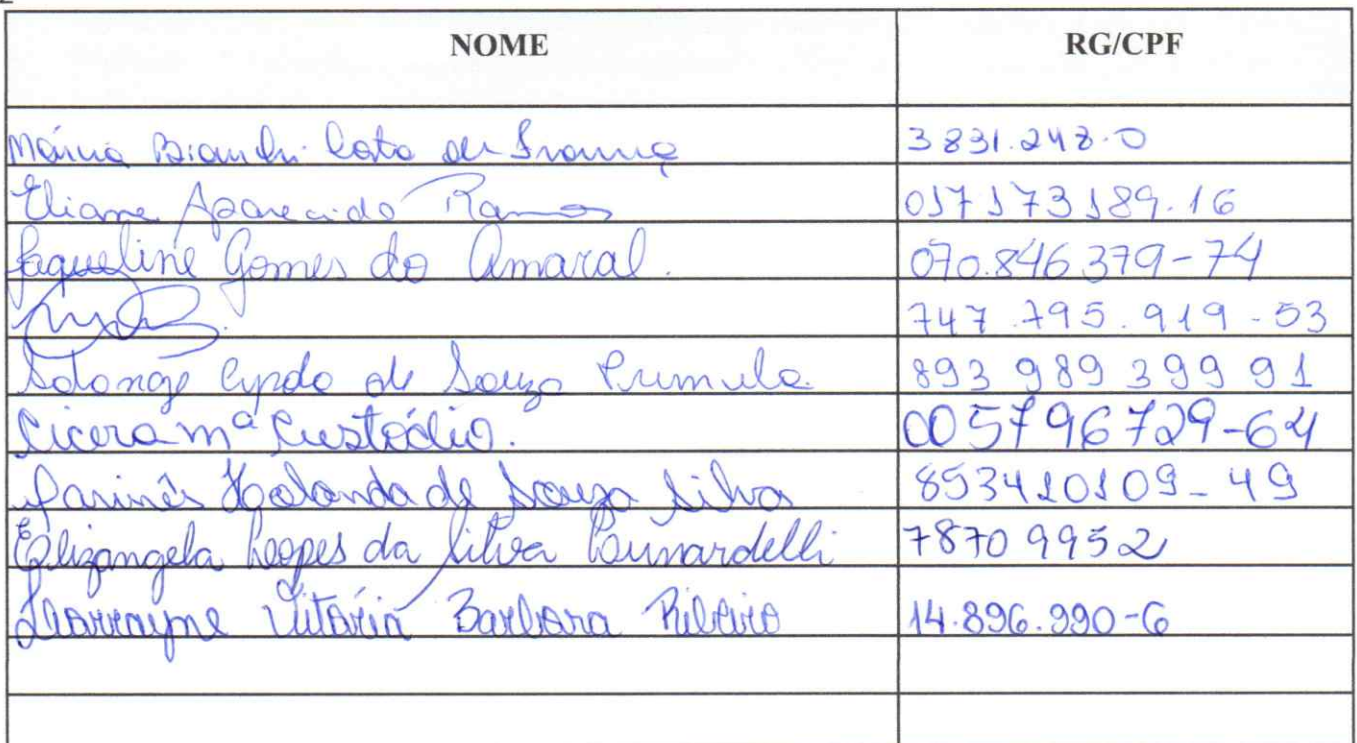 NOME RG/CPF
Márcia Bianchi Costa de França 3831.248.0
Eliane Aparecida Ramos 017173189.16
Jaqueline Gomes do Amaral. 070.846.379-74
747.795.919-53
Solange de Souza 893 989 399 91
Cicera Mª Custódio. 005796729-64
Marinês Holanda de Souza Silva 853410109-49
Elizangela Loopes da Silva 78709952
Vitória Barbara Ribeiro 14.896.990-6